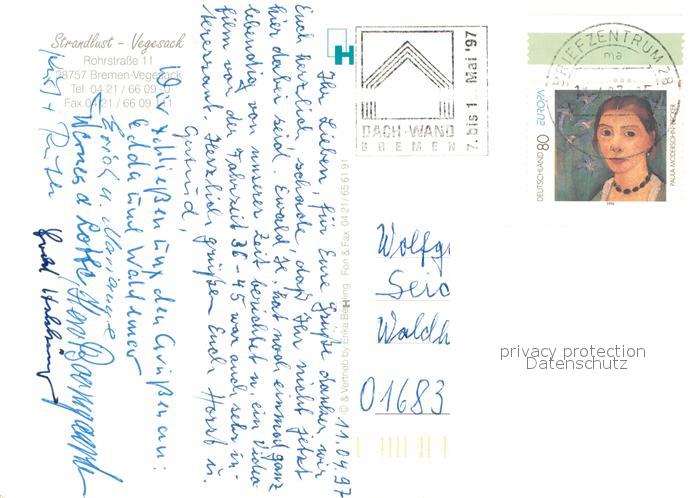 Strandlust – Vegesack
Rohrstraße 11
28757 Bremen-Vegesack
Tel. 04 21 / 66 09
Fax 04 21 / 66 09 111
H
DACH + WAND
BREMEN
7. bis 1 Mai '97
BRIEFZENTRUM 28
DEUTSCHLAND 80
EUROPA
PAULA MODERSOHN-BECKER
1996
11.04.97
Ihr Lieben, für Eure Grüße danken wir
Euch herzlich, schade daß Ihr nicht jetzt
hier dabei seid. Ewald H. hat noch einmal ganz
lebendig von unserer Zeit berichtet u. ein Video-
film von der Fahrzeit 36-45 war auch sehr in-
teressant. Herzlich grüßen Euch Horst u.
Gertrud,
Wir schließen uns den Grüßen an:
Edda und Waldemar
Erich u. Marianne
Werner & Lotte
& Vertrieb by Erika
Fon & Fax 04 21/ 65 61 91
Wolfg
Seid
Waldh
01683
privacy protection
Datenschutz